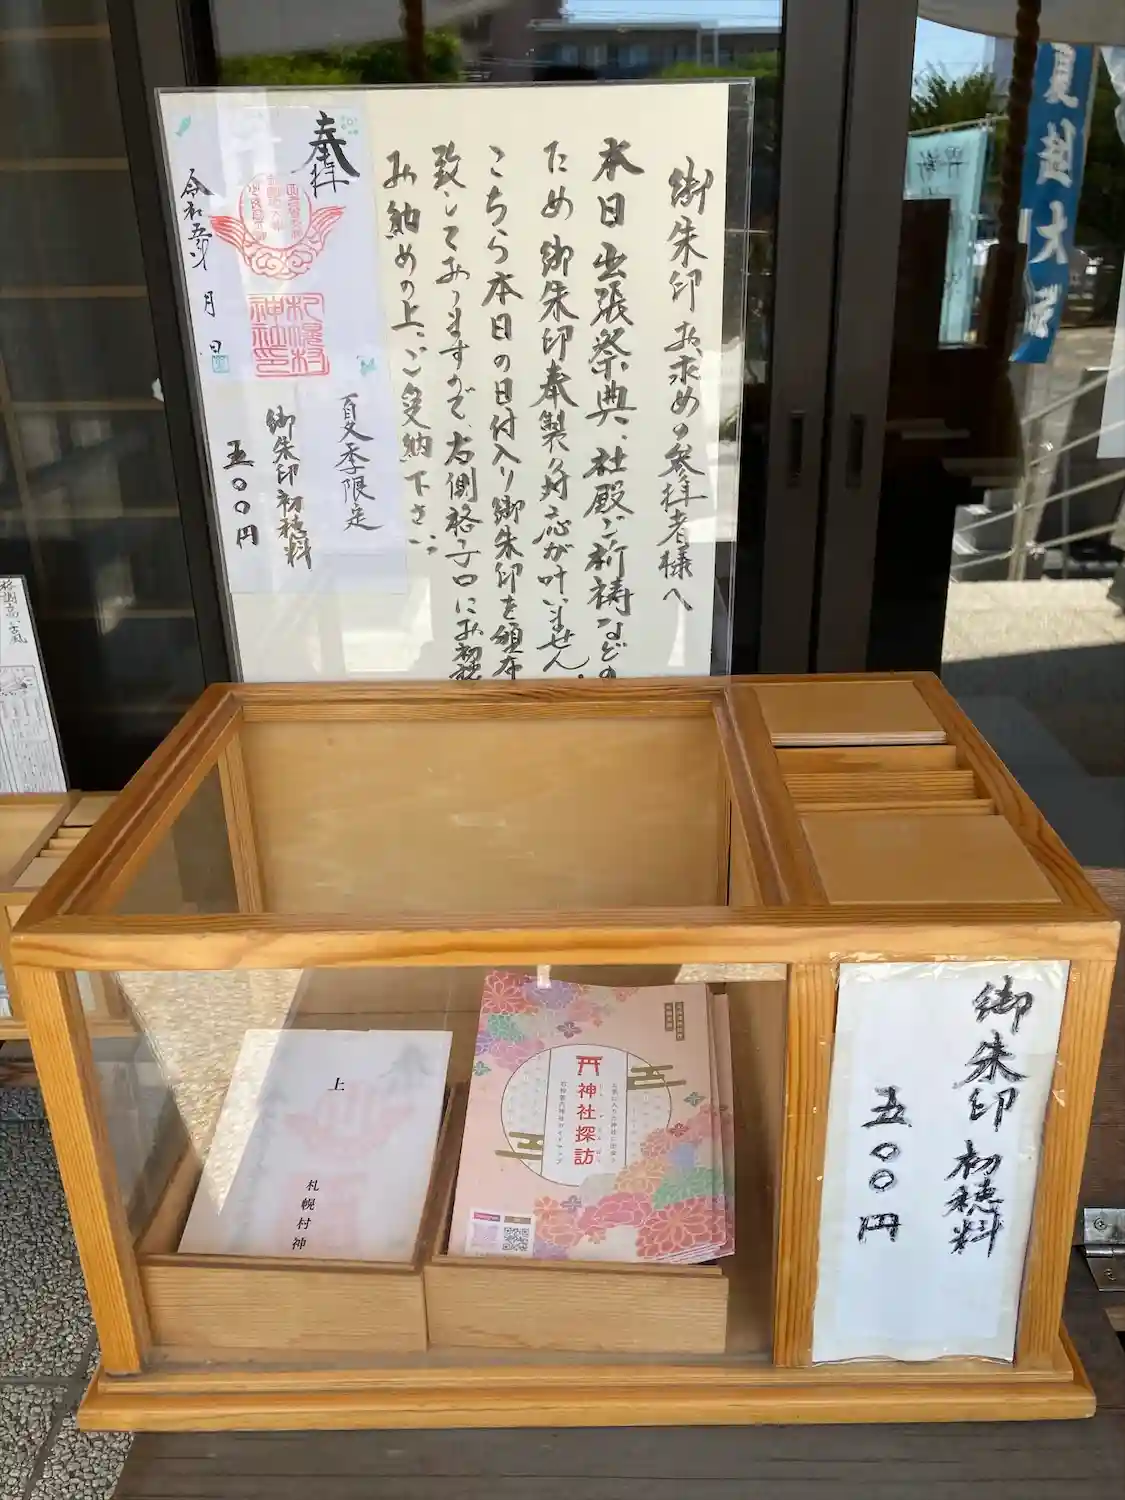 御朱印お求めの参拝者様へ
本日出張祭典、社殿ご祈祷などの
ため御朱印奉製対応が叶いません。
こちら本日の日付入り御朱印を頒布
致しておりますので、右側格子口にお初穂
お納めの上、ご受納下さい。
奉拝
令和五年 月 日
札幌村神社印
夏季限定
御朱印初穂料
五〇〇円
夏越大祓
上
札幌村神
神社探訪
御朱印初穂料
五〇〇円